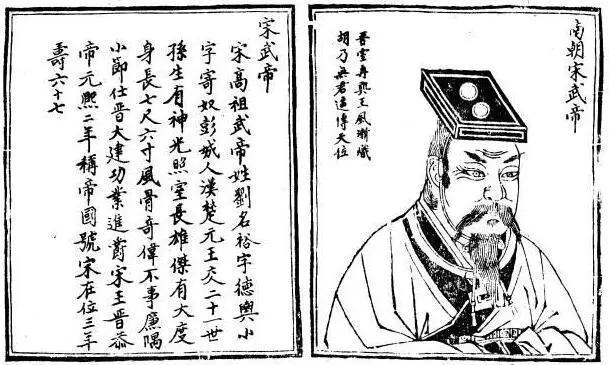 南朝宋武帝
晉室再王風漸熾
胡乃無君傳天位
宋武帝
宋高祖武帝姓劉名裕字德輿小
字寄奴彭城人漢楚元王交二十一世
孫生有神光照室長雄傑有大度
身長七尺六寸風骨奇偉不事廉隅
小節仕晉大建功業進爵宋王晉恭
帝元熙二年稱帝國號宋在位三年
壽六十七